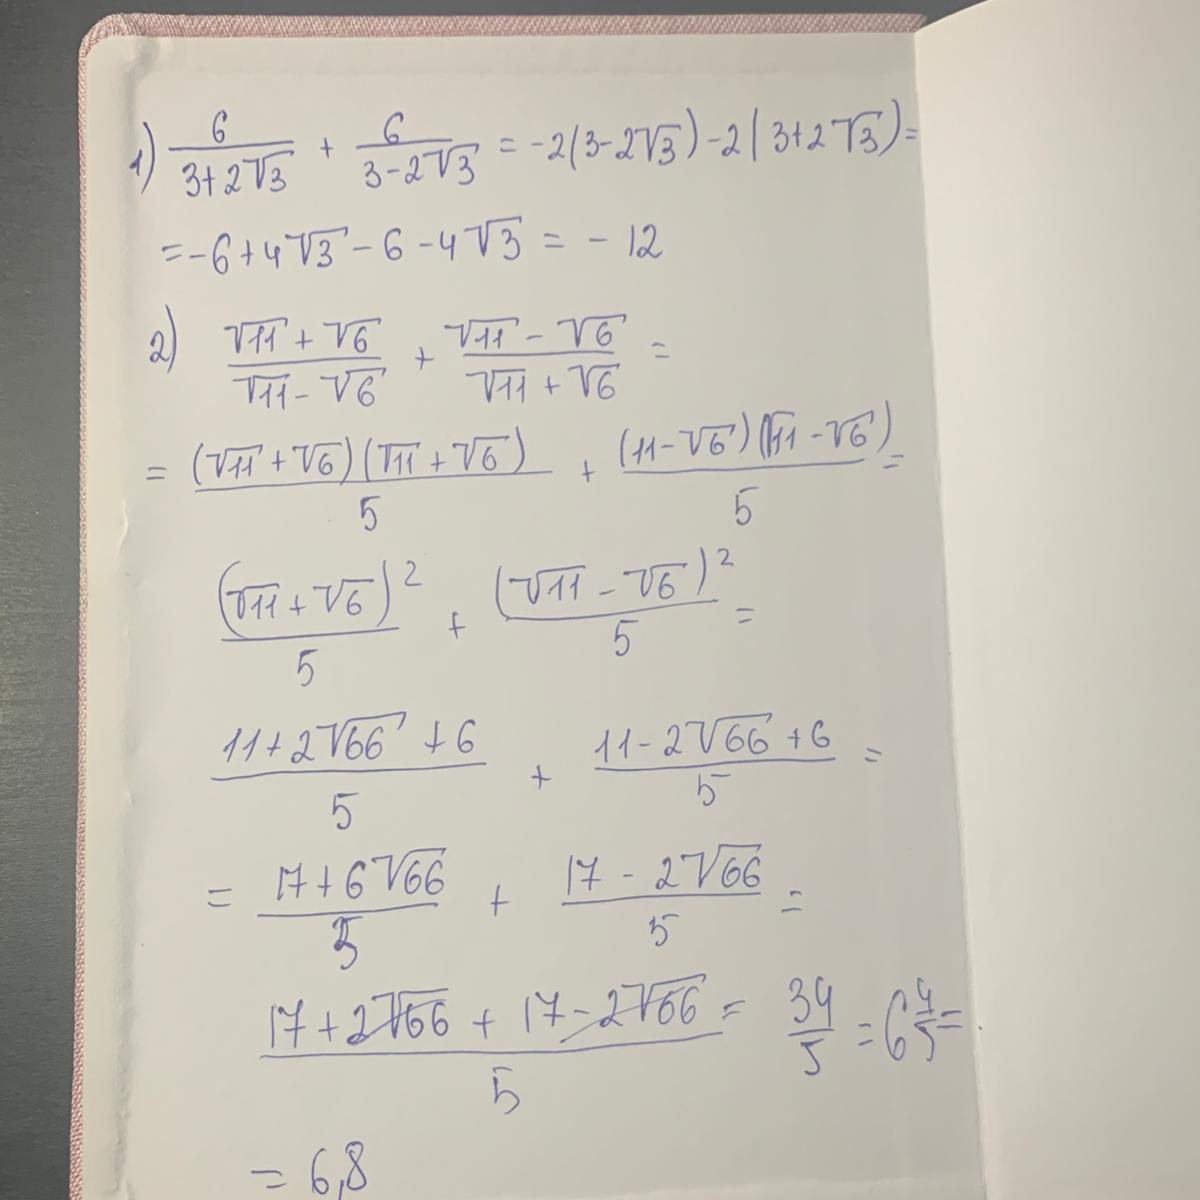 1) 6/(3+2√3) + 6/(3-2√3) = -2(3-2√3)-2(3+2√3)=
=-6+4√3-6-4√3 = -12
2) (√11+√6)/(√11-√6) + (√11-√6)/(√11+√6) =
= (√11+√6)(√11+√6)/5 + (11-√6)(√11-√6)/5 =
(√11+√6)²/5 + (√11-√6)²/5 =
(11+2√66+6)/5 + (11-2√66+6)/5 =
= (17+6√66)/5 + (17-2√66)/5 =
(17+2√66+17-2√66)/5 = 34/5 = 6 4/5 =
= 6,8